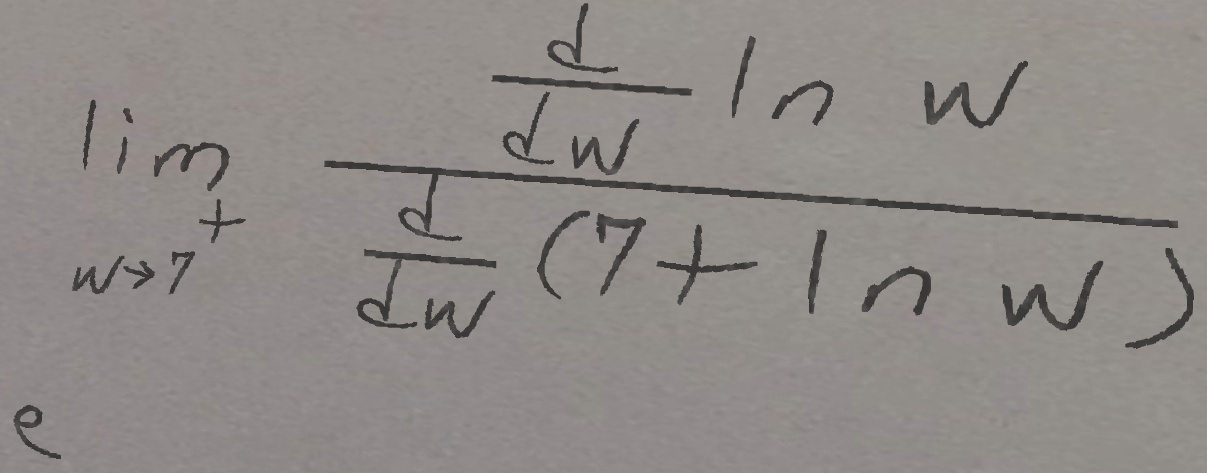 e^{\lim_{w \to 7^{+}} \frac{\frac{d}{dw} \ln w}{\frac{d}{dw} (7 + \ln w)}}